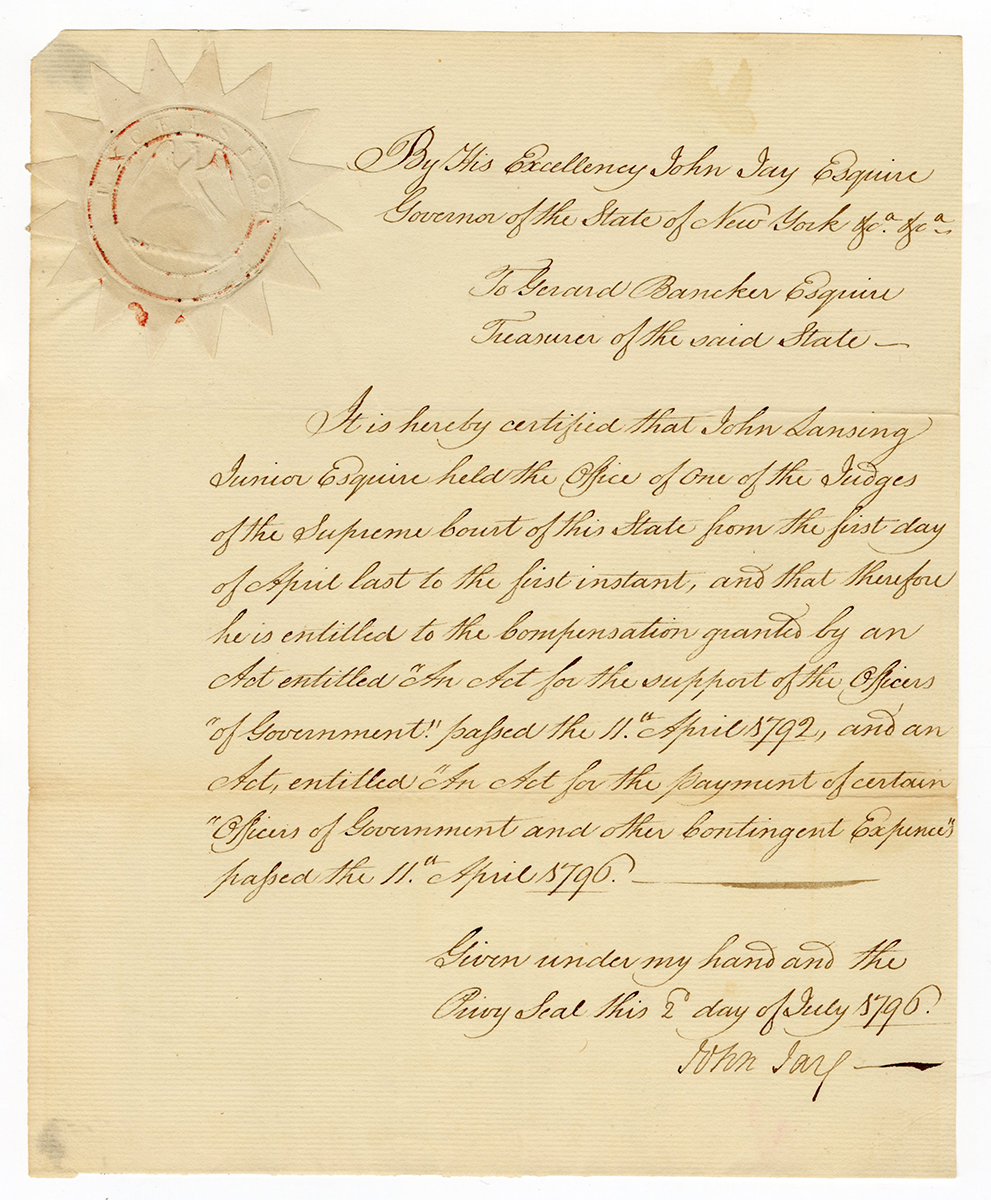 EXCELSIOR
By His Excellency John Jay Esquire
Governor of the State of New York &c.a &c.a
To Gerard Bancker Esquire
Treasurer of the said State —
It is hereby certified that John Lansing
Junior Esquire held the Office of one of the Judges
of the Supreme Court of this State from the first day
of April last to the first instant, and that therefore
he is entitled to the Compensation granted by an
Act entitled "An Act for the support of the Officers
"of Government" passed the 11.th April 1792, and an
Act, entitled "An Act for the payment of certain
"Officers of Government and other Contingent Expences"
passed the 11.th April 1796. —
Given under my hand and the
Privy Seal this 2d day of July 1796.
John Jay —